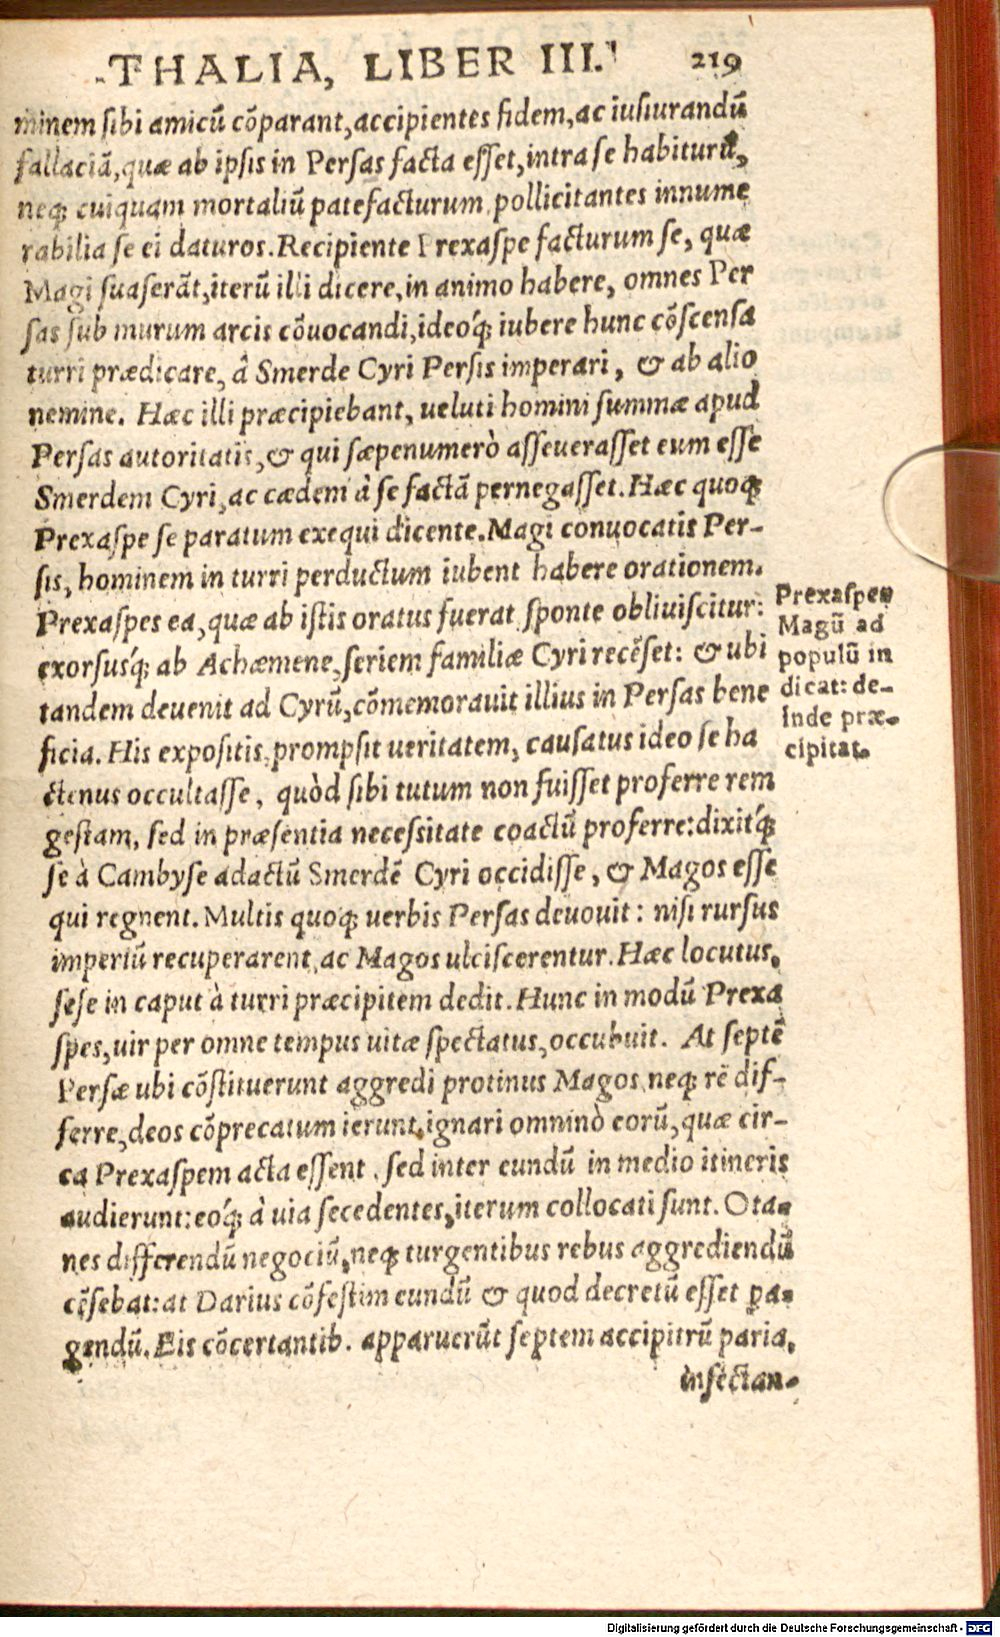 THALIA, LIBER III. 219
minem ſibi amicū cōparant, accipientes fidem, ac iuſiurandū
fallaciā, quæ ab ipſis in Perſas facta eſſet, intra ſe habiturū,
neq; cuiquam mortaliū patefacturum, pollicitantes innume
rabilia ſe ei daturos. Recipiente Prexaſpe facturum ſe, quæ
Magi ſuaſerāt, iterū illi dicere, in animo habere, omnes Per
ſas ſub murum arcis cōuocandi, ideoq́; iubere hunc cōſcenſa
turri prædicare, â Smerde Cyri Perſis imperari, & ab alio
nemine. Hæc illi præcipiebant, ueluti homini ſummæ apud
Perſas autoritatis, & qui ſæpenumerò aſſeueraſſet eum eſſe
Smerdem Cyri, ac cædem à ſe factā pernegaſſet. Hæc quoq;
Prexaſpe ſe paratum exequi dicente. Magi conuocatis Per-
ſis, hominem in turri perductum iubent habere orationem.
Prexaſpes ea, quæ ab iſtis oratus fuerat ſponte obliuiſcitur:
exorſusq́; ab Achæmene, ſeriem familiæ Cyri recēſet: & ubi
tandem deuenit ad Cyrū, cōmemorauit illius in Perſas bene
ficia. His expoſitis, prompſit ueritatem, cauſatus ideo ſe ha
ctenus occultaſſe, quòd ſibi tutum non fuiſſet proferre rem
geſtam, ſed in præſentia neceſsitate coactū proferre: dixitq́;
ſe à Cambyſe adactū Smerdē Cyri occidiſſe, & Magos eſſe
qui regnent. Multis quoq; uerbis Perſas deuouit: niſi rurſus
imperiū recuperarent, ac Magos ulciſcerentur. Hæc locutus,
ſeſe in caput à turri præcipitem dedit. Hunc in modū Prexa
ſpes, uir per omne tempus uitæ ſpectatus, occubuit. At ſeptē
Perſæ ubi cōſtituerunt aggredi protinus Magos, neq; rē dif-
ferre, deos cōprecatum ierunt, ignari omninò eorū, quæ cir-
ca Prexaſpem acta eſſent. ſed inter eundū in medio itineris
audierunt: eoq́; à uia ſecedentes, iterum collocati ſunt. Ota-
nes differendū negociū, neq; turgentibus rebus aggrediendū
cēſebat: at Darius cōfeſtim eundū & quod decretū eſſet pa-
gendū. Eis cōcertantib. apparuerūt ſeptem accipitrū paria,
inſectan-
Prexaſpes
Magū ad
populū in
dicat: de-
inde præ-
cipitat.
Digitalisierung gefördert durch die Deutsche Forschungsgemeinschaft - DFG